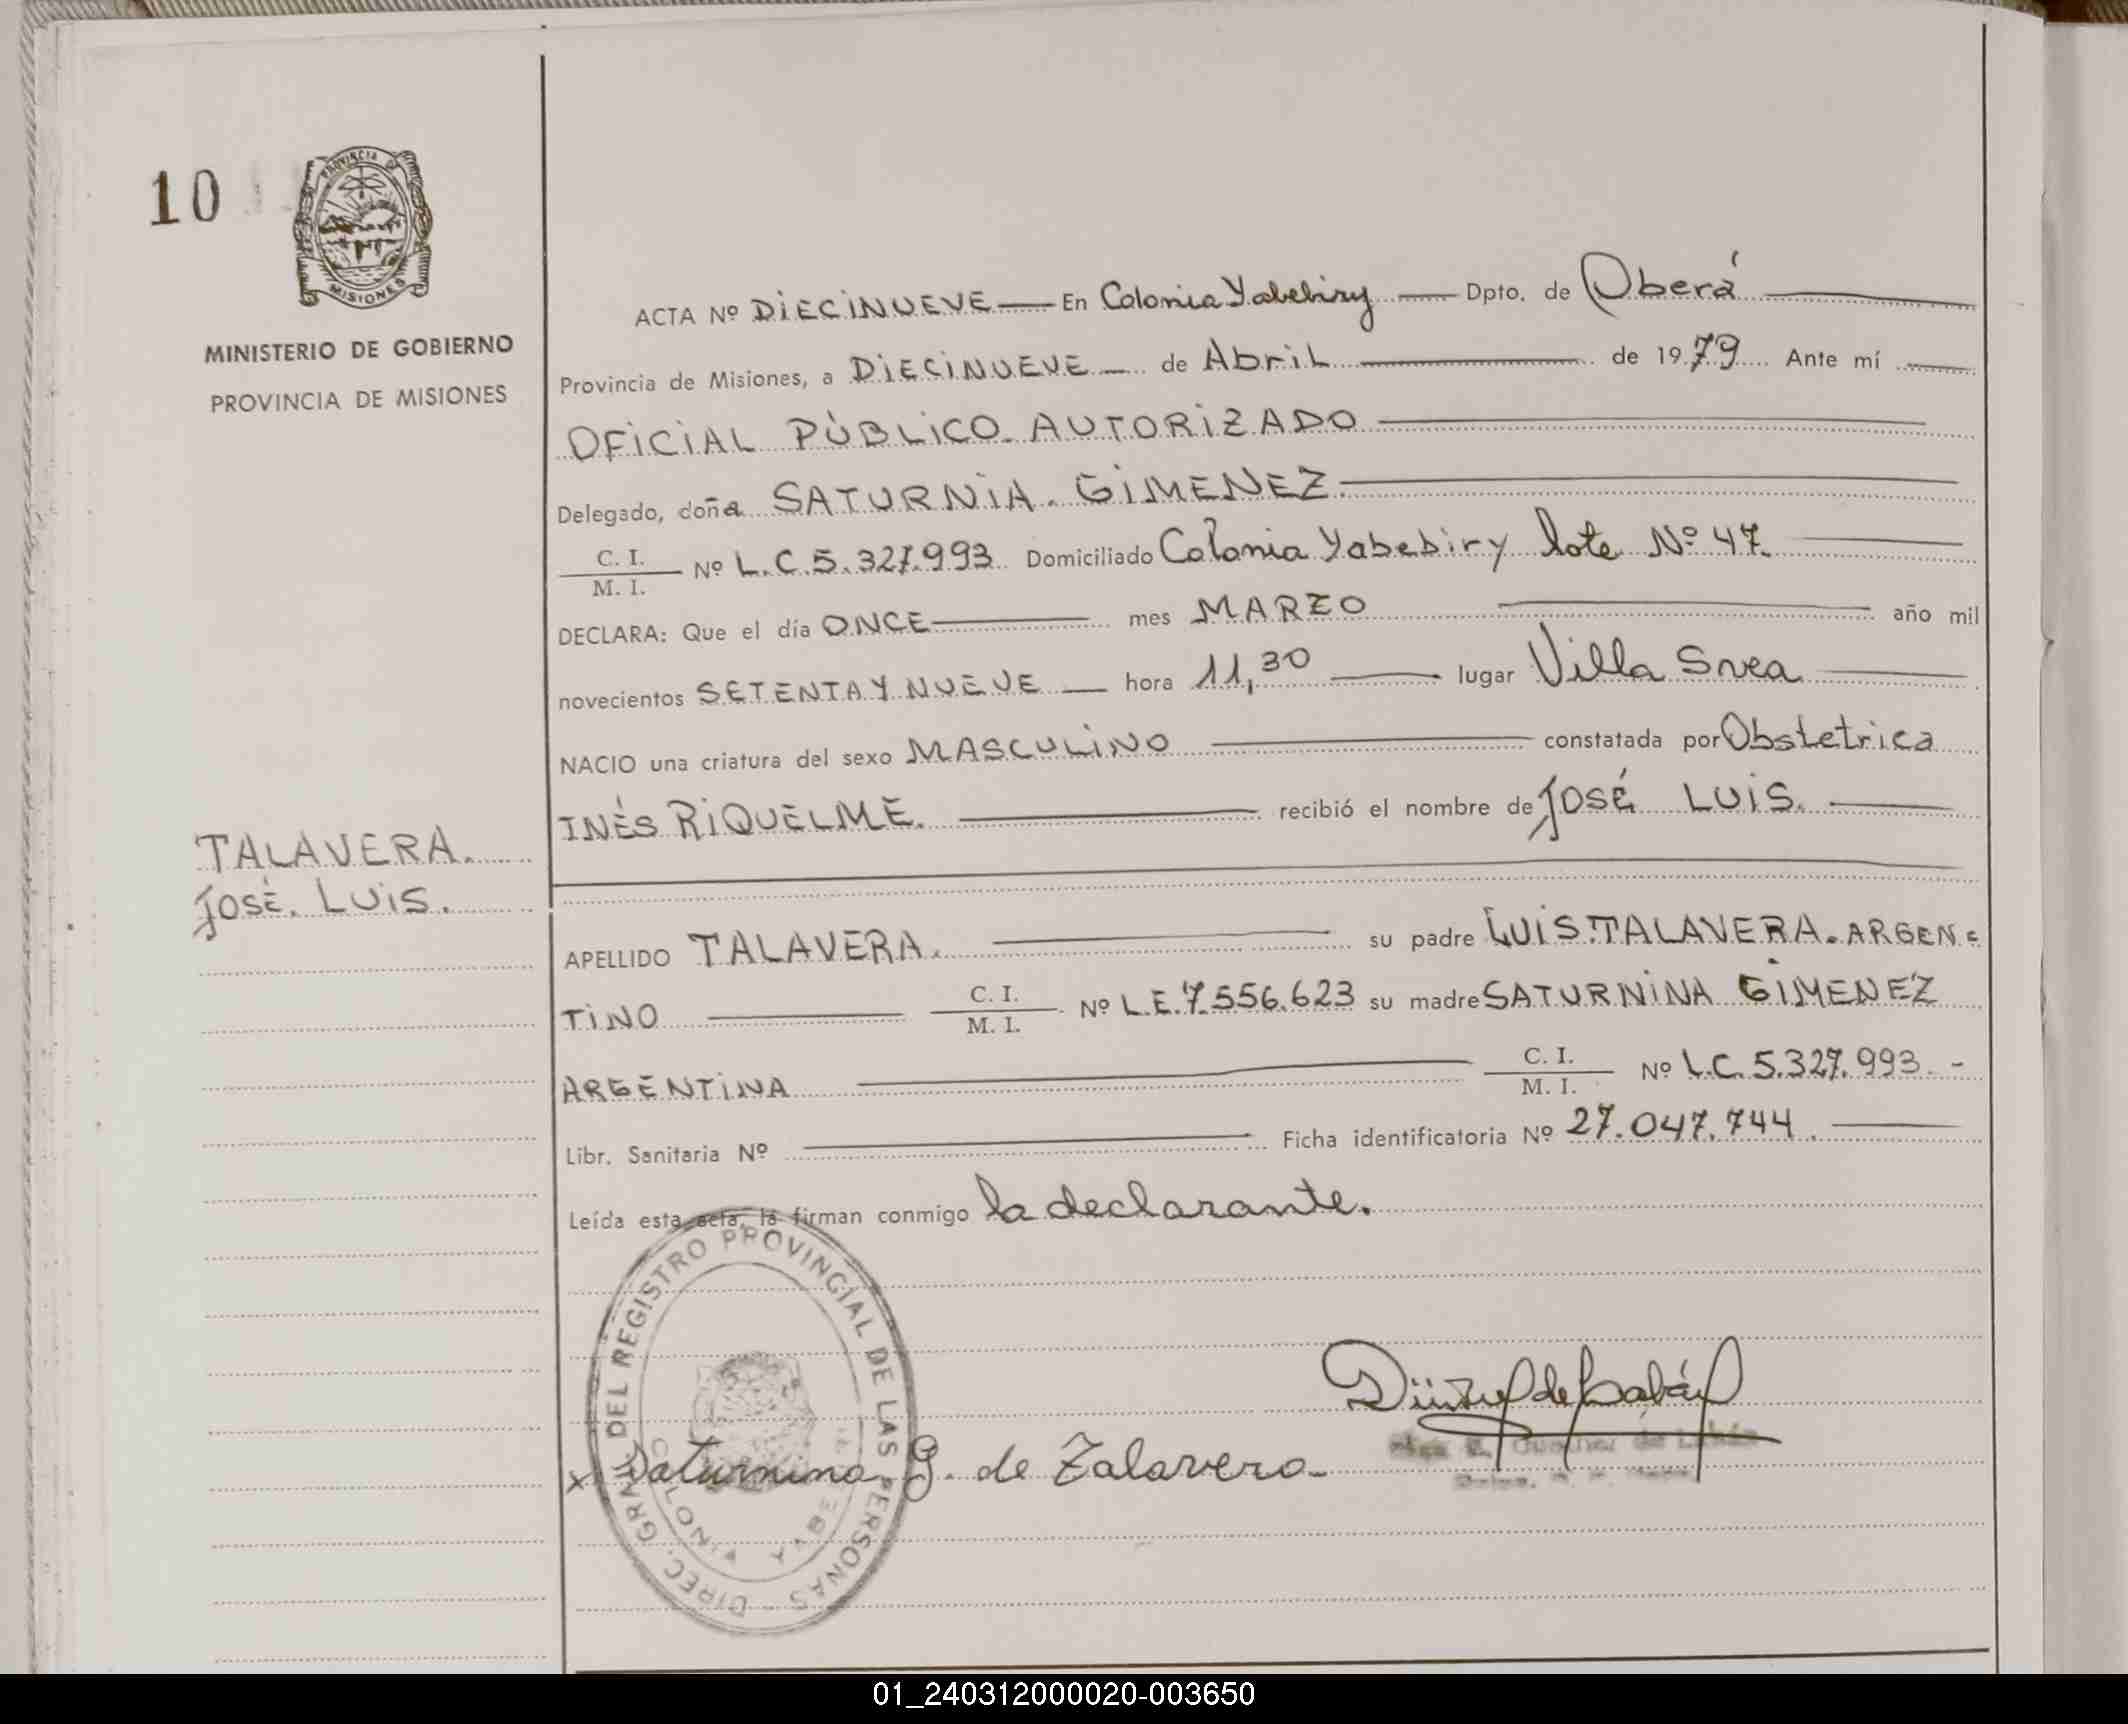 10
PROVINCIA DE
MISIONES
MINISTERIO DE GOBIERNO
PROVINCIA DE MISIONES
TALAVERA.
JOSÉ. LUiS.
ACTA Nº DiECiNUEVE En Colonia Yabebiry Dpto. de Oberá
Provincia de Misiones, a DiECiNUEVE de AbriL de 1979 Ante mí
OFiCiAL PÙBLiCO AUTORiZADO
Delegado, doña SATURNiA. GiMENEZ.
C. I.
M. I.
Nº L.C.5.327.993 Domiciliado Colonia Yabebiry lote Nº 47
DECLARA: Que el día ONCE mes MARZO año mil
novecientos SETENTA Y NUEVE hora 11,30 lugar Villa Svea
NACIO una criatura del sexo MASCULiNO constatada por Obstetrica
INÉS RiQUELME. recibió el nombre de JOSÉ LUiS.
APELLIDO TALAVERA. su padre LUiS.TALAVERA. ARGEN=
TiNO C. I.
M. I.
Nº L.E.7.556.623 su madre SATURNiNA GiMENEZ
ARGENTiNA C. I.
M. I.
Nº L.C. 5.327.993. -
Libr. Sanitaria Nº Ficha identificatoria Nº 27.047.744.
Leída esta acta, la firman conmigo la declarante.
DIREC. GRAL. DEL REGISTRO PROVINCIAL DE LAS PERSONAS -
COLONIA YABEBIRI
x Saturnina G. de Talavera-
01_240312000020-003650